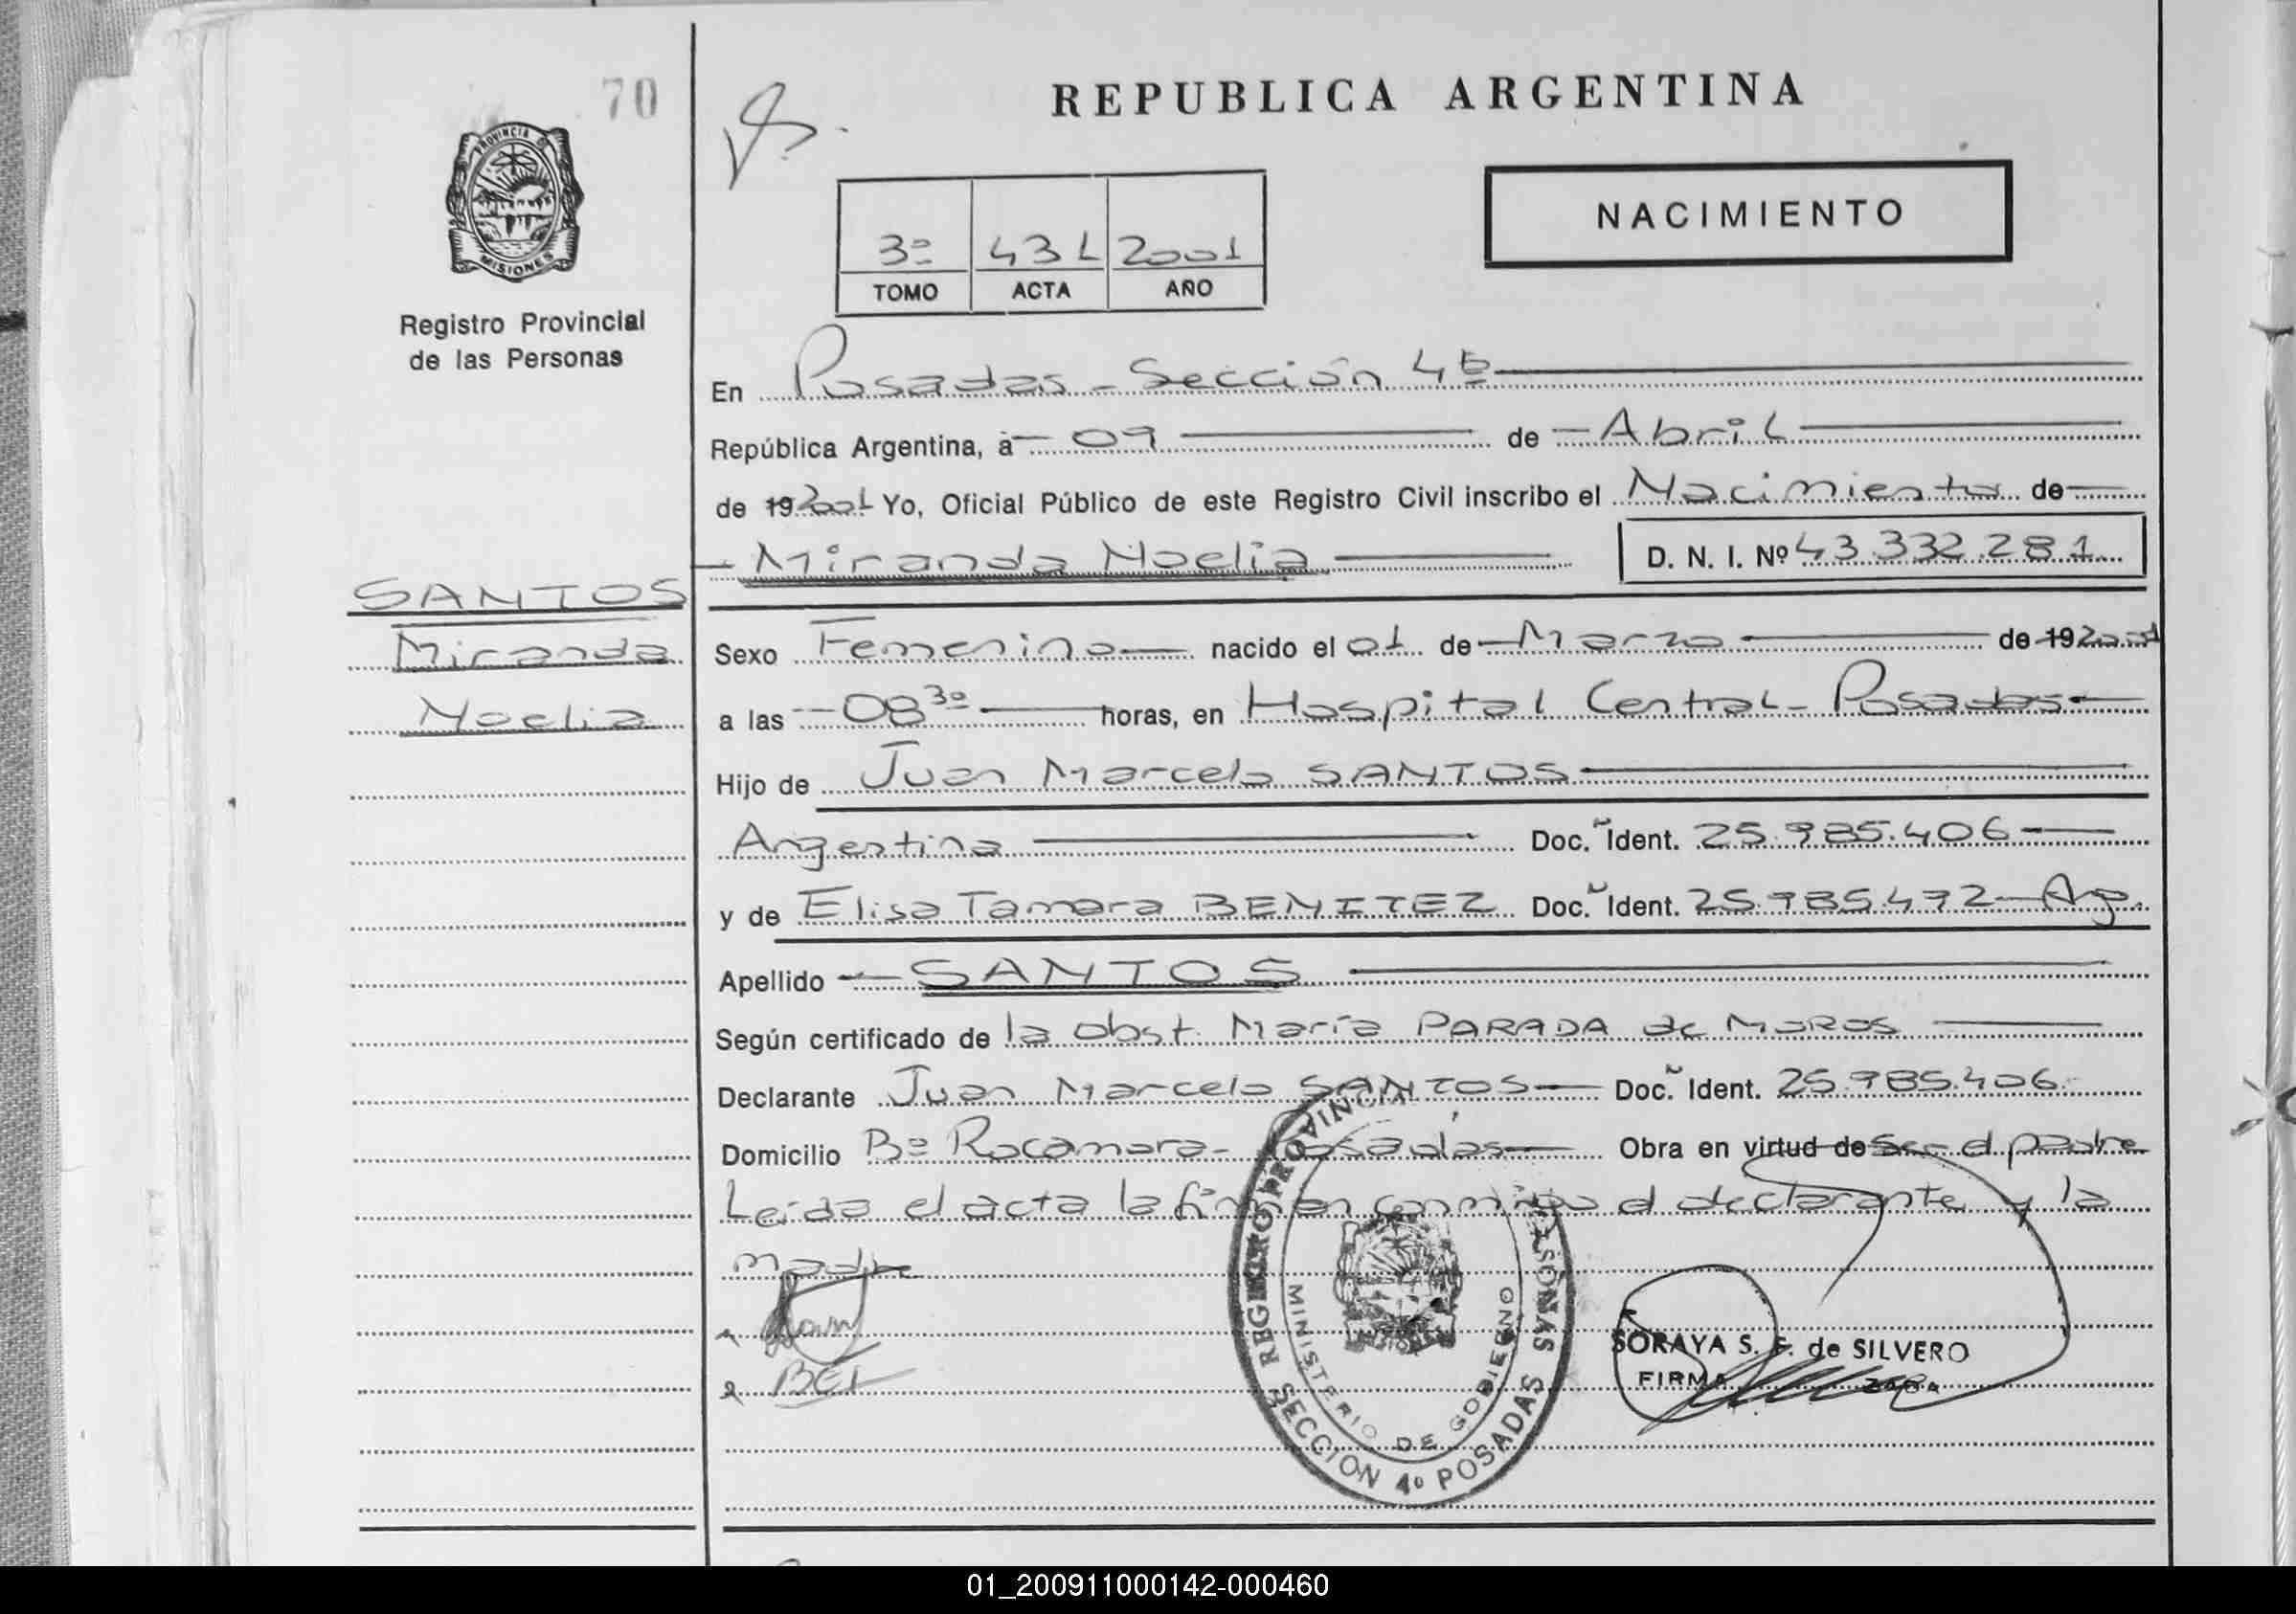 70
REPUBLICA ARGENTINA
PROVINCIA DE
MISIONES
Registro Provincial
de las Personas
NACIMIENTO
3º 431 2001
TOMO ACTA AÑO
En Posadas - Sección 4ta
República Argentina, a 09 de Abril
de 19 2001 Yo, Oficial Público de este Registro Civil inscribo el Nacimiento de
Miranda Noelia D. N. I. Nº 43.332.281
SANTOS
Miranda
Noelia
Sexo Femenino nacido el 01 de Marzo de 19 2001
a las 08 30 horas, en Hospital Central - Posadas
Hijo de Juan Marcelo SANTOS
Argentina Doc. Ident. 25.985.406
y de Elisa Tamara BENITEZ Doc. Ident. 25.985.472 - Arg.
Apellido SANTOS
Según certificado de la obst. María PARADA de MOROS
Declarante Juan Marcelo SANTOS Doc. Ident. 25.985.406
Domicilio Bº Rocamora - Posadas Obra en virtud de ser el padre
Leída el acta la firman conmigo el declarante y la
madre
REGISTRO PROVINCIAL PERSONAS
MINISTERIO DE GOBIERNO
SECCION 4º POSADAS
SORAYA S. F. de SILVERO
FIRMA
BEL
01_200911000142-000460